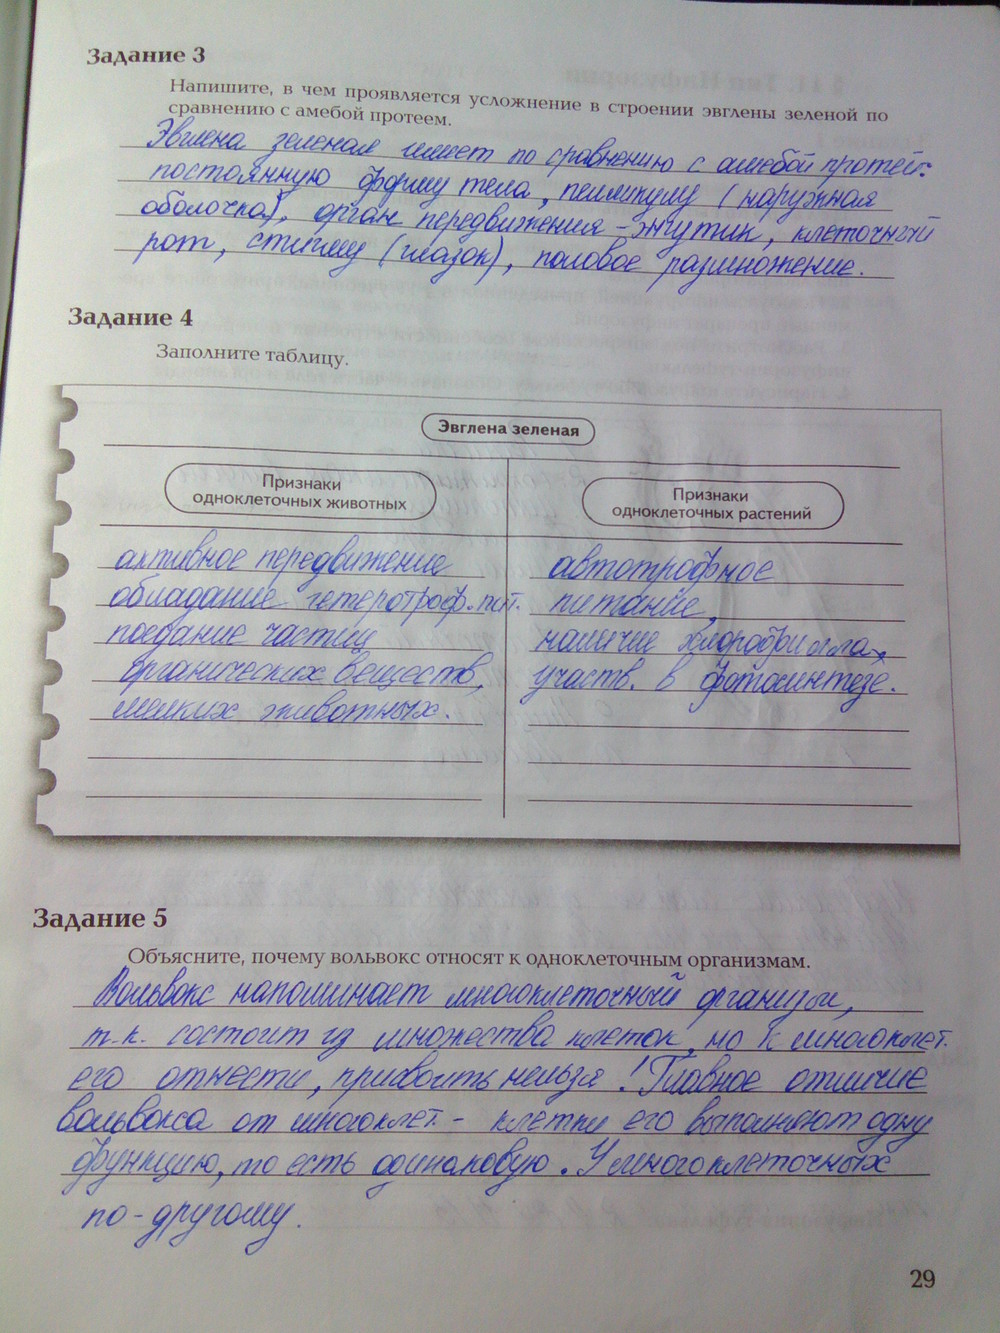 Задание 3
Напишите, в чем проявляется усложнение в строении эвглены зеленой по
сравнению с амебой протеем.
Эвглена зеленая имеет по сравнению с амебой протей:
постоянную форму тела, пелликулу (наружная
оболочка), орган передвижения - жгутик, клеточный
рот, стигму (глазок), половое размножение.
Задание 4
Заполните таблицу.
Эвглена зеленая
Признаки
одноклеточных животных
Признаки
одноклеточных растений
активное передвижение
обладание гетеротроф. пит.
поедание частиц
органических веществ,
мелких животных.
автотрофное
питание,
наличие хлорофилла,
участв. в фотосинтезе.
Задание 5
Объясните, почему вольвокс относят к одноклеточным организмам.
Вольвокс напоминает многоклеточный организм,
т.к. состоит из множества клеток, но к многоклет.
его отнести, присвоить нельзя! Главное отличие
вольвокса от многоклет. - клетки его выполняют одну
функцию, то есть одинаковую. У многоклеточных
по-другому.
29